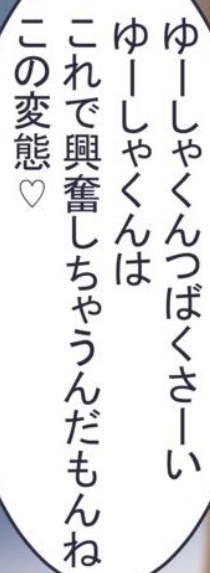 ゆーしゃくんつばくさーい
ゆーしゃくんは
これで興奮しちゃうんだもんね
この変態♡